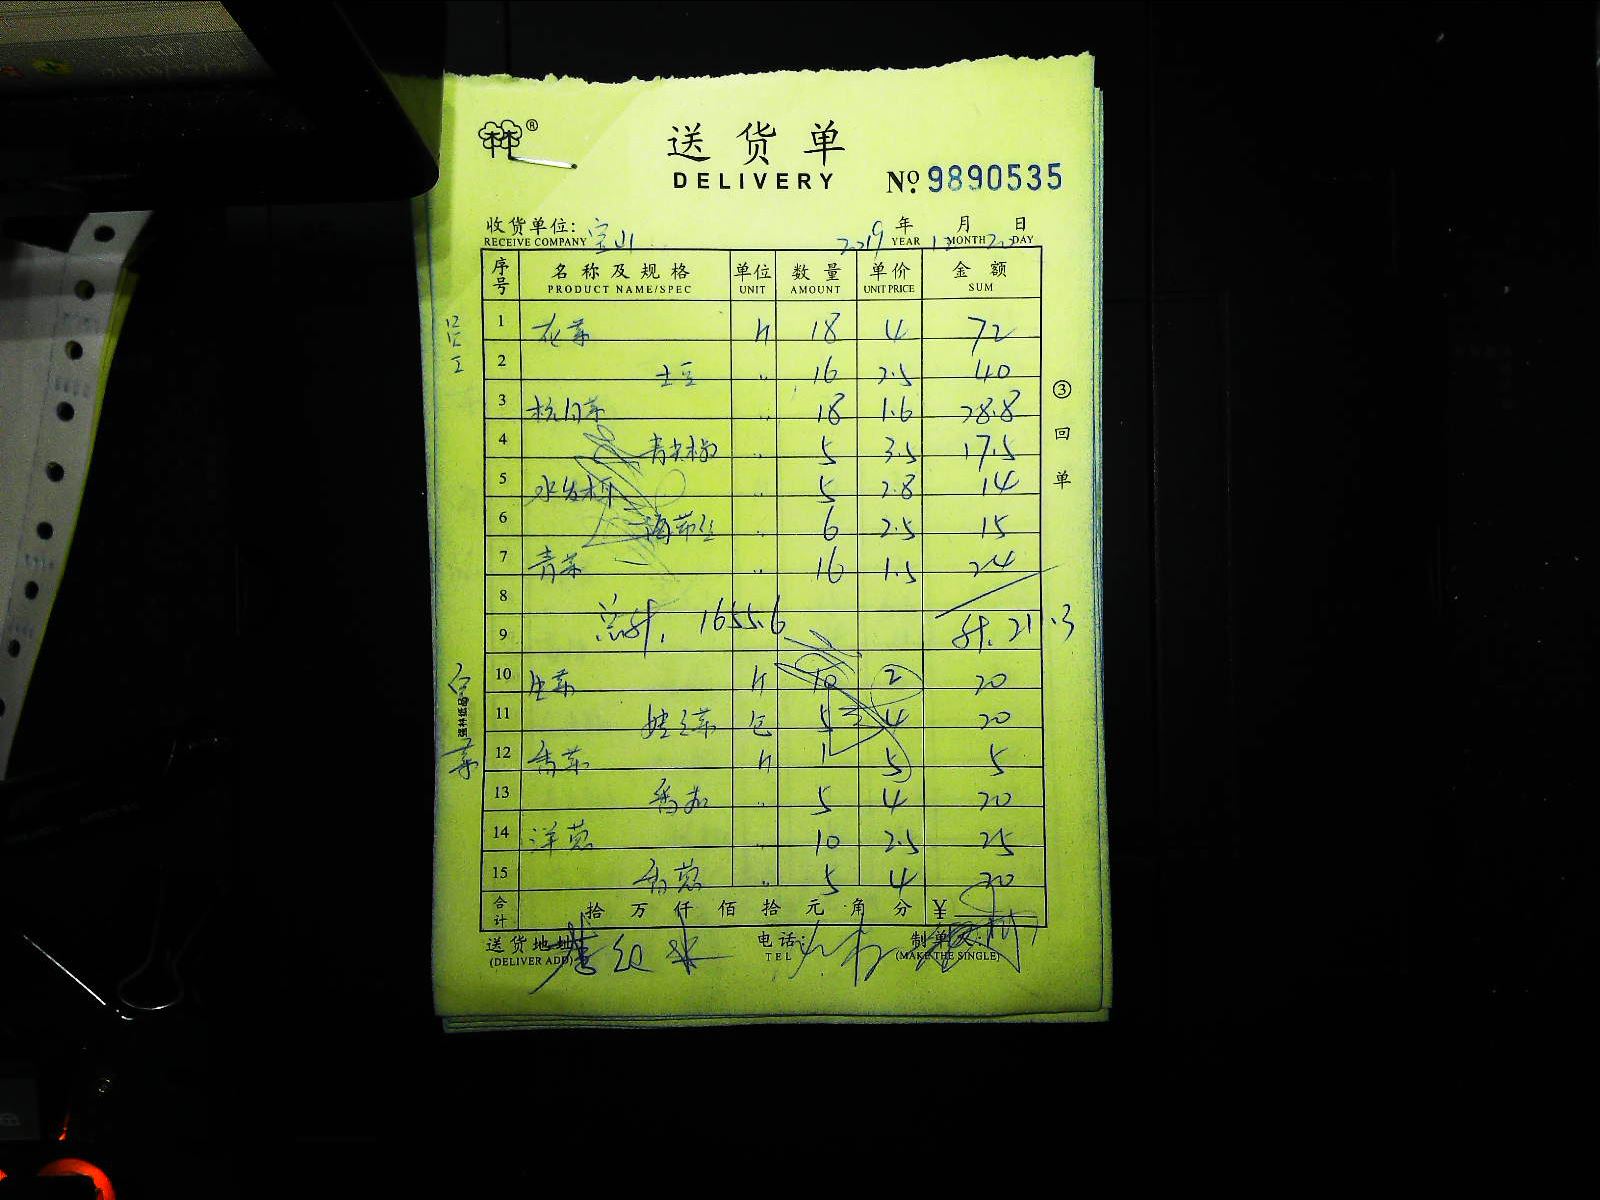 送货单
DELIVERY
No. 9890535
收货单位: 宝山 2019 年 12 月 20 日
RECEIVE COMPANY YEAR MONTH DAY
序号 名称及规格 单位 数量 单价 金额
PRODUCT NAME/SPEC UNIT AMOUNT UNIT PRICE SUM
1 花菜 斤 18 4 72
2 土豆 〃 16 2.5 40
3 杭白菜 〃 18 1.6 28.8
4 青尖椒 〃 5 3.5 17.5
5 水发 〃 5 2.8 14
6 海带丝 〃 6 2.5 15
7 青菜 〃 16 1.5 24
8
总计. 1655.6
9 计. 211.3
10 生菜 斤 10 2 20
11 娃娃菜 包 5 4 20
12 香菜 斤 1 5 5
13 香菇 〃 5 4 20
14 洋葱 〃 10 2.5 25
15 香葱 〃 5 4 20
合计 拾 万 仟 佰 拾 元 角 分 ¥
送货地址: 电话: 制单人:
(DELIVER ADD) TEL (MAKE THE SINGLE)
③回单
强林纸品